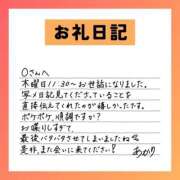 お礼日記
Oさんへ
木曜日11:30〜お世話になりました。
写メ日記見てくださっていることを
直接伝えてくれたのが嬉しかったです。
ポケポケ、順調ですか?
お喋りしすぎて、
最後バタバタさせてしまいましたね
是非、また会いに来てください?
あかり